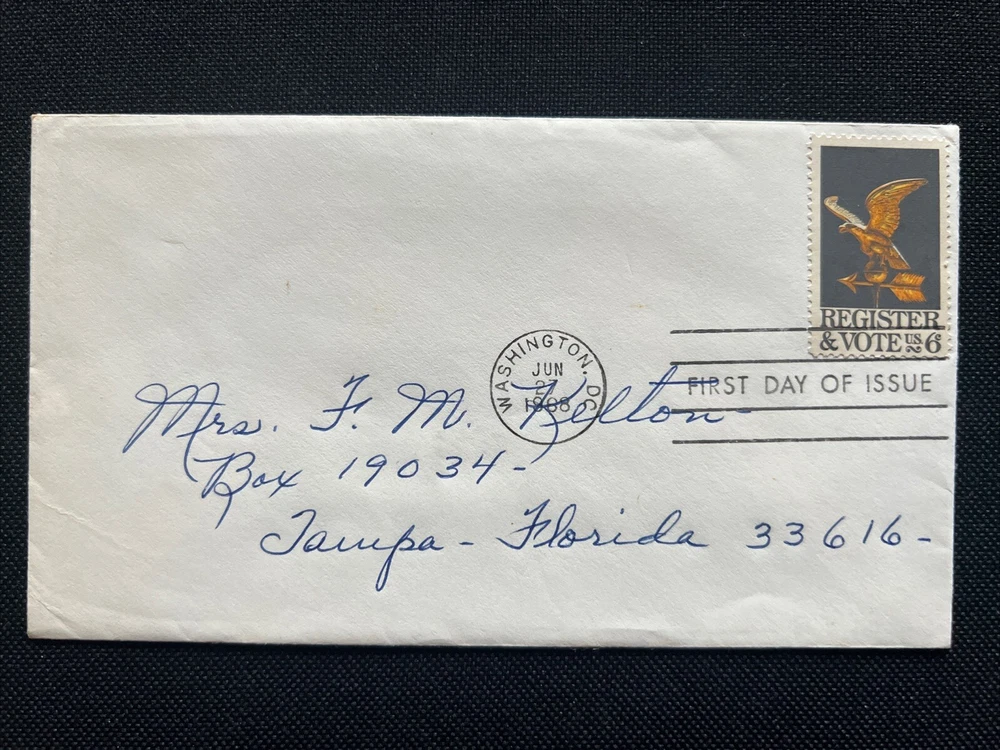 REGISTER
& VOTE U.S. 6¢
WASHINGTON, DC
JUN
1968
FIRST DAY OF ISSUE
Mrs. F. M. Kelton-
Box 19034-
Tampa - Florida 33616-